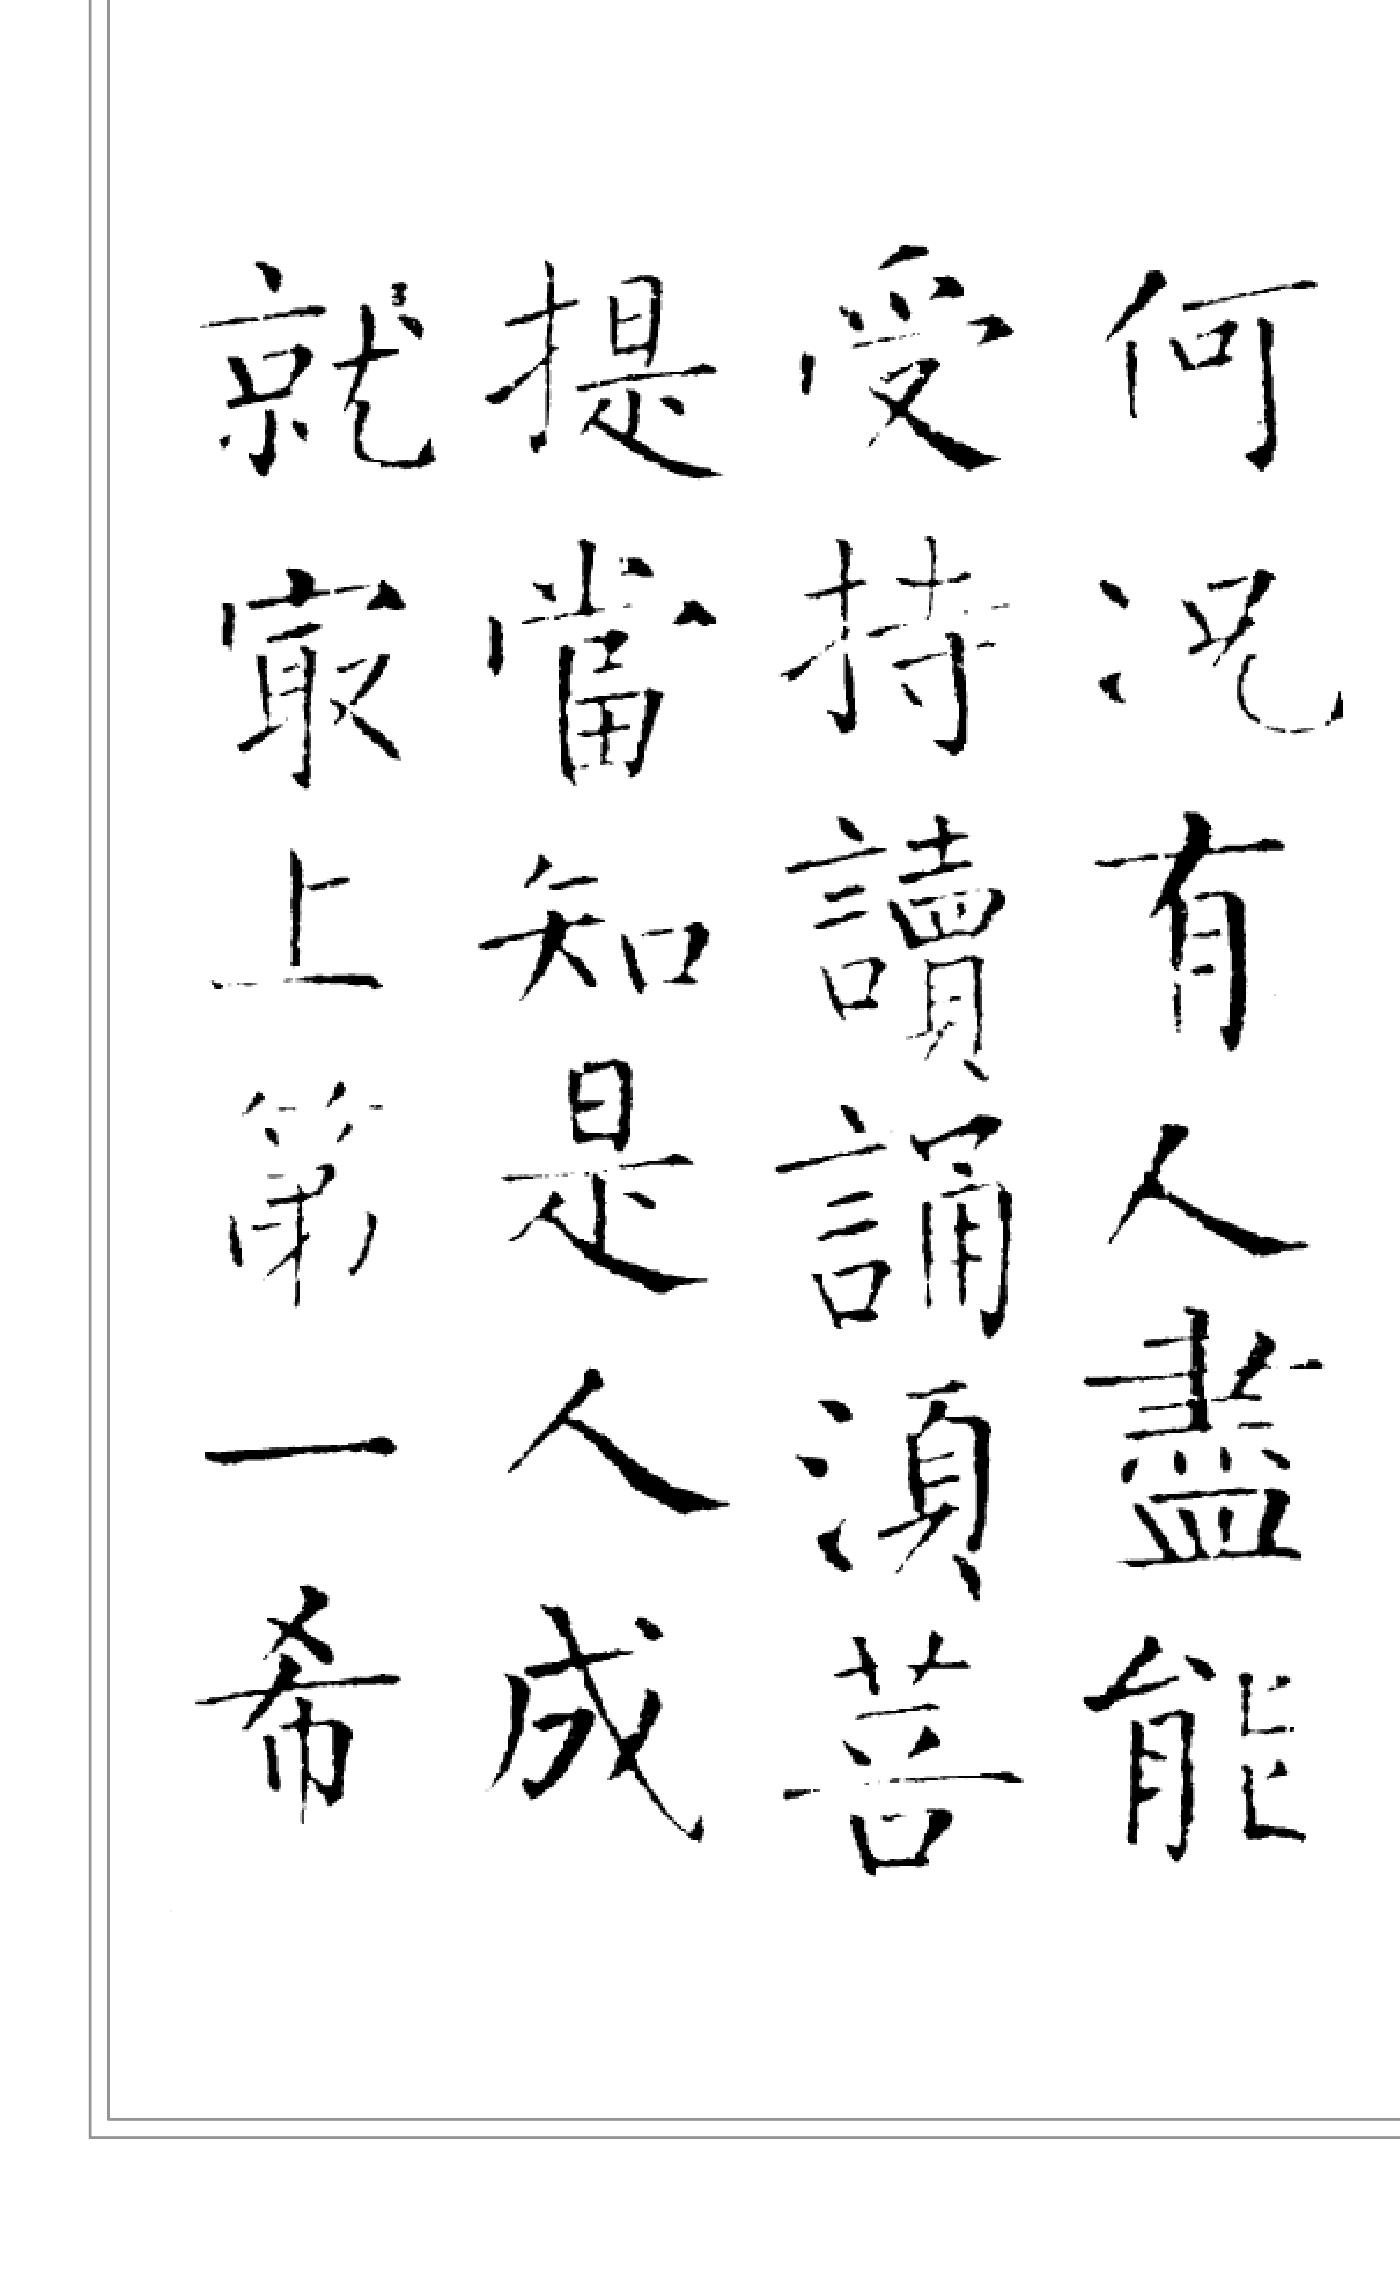 何况有人盡能
受持讀誦湏菩
提當知是人成
就冣上第一希